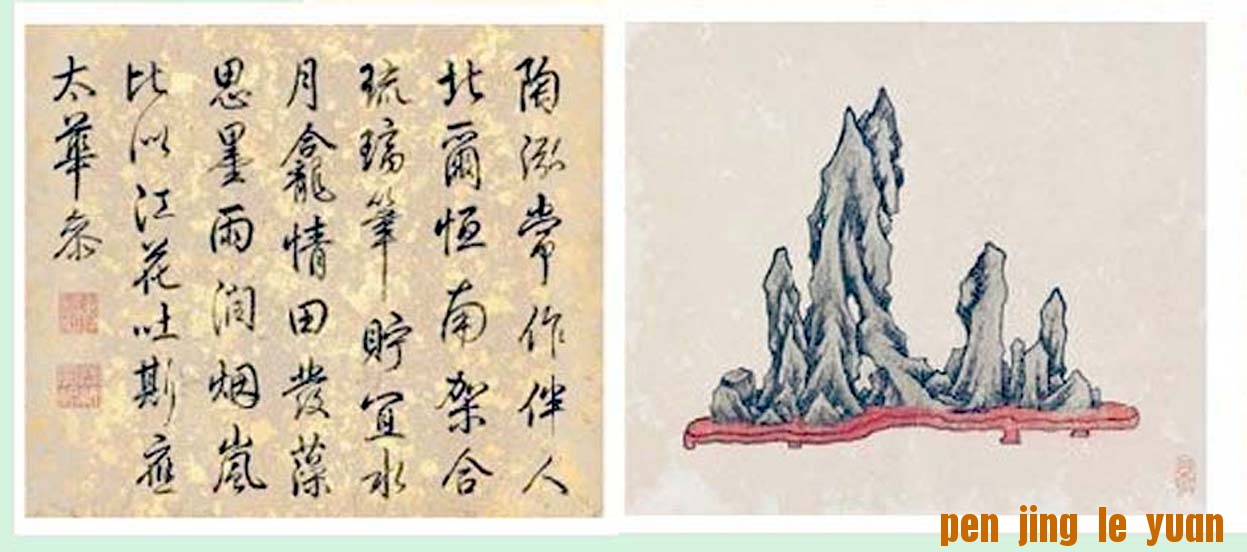 陶泓常作伴人
北爾恒南架合
琉璃筆貯宜水
月龕情田發藻
思墨雨潤烟嵐
比似江花吐斯應
太華參
pen jing le yuan